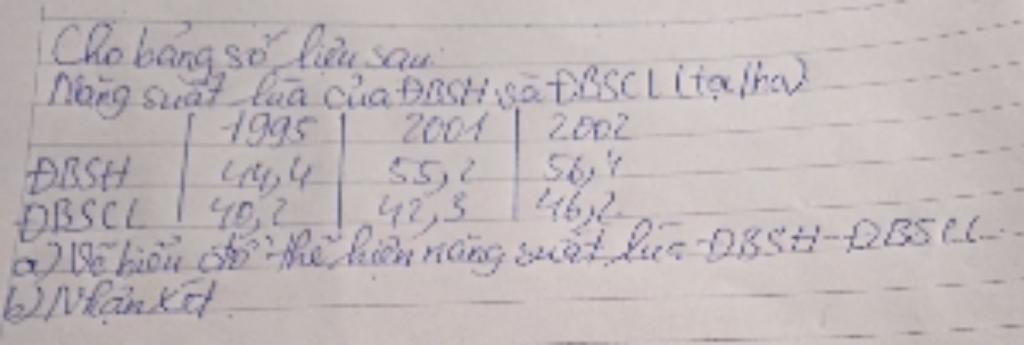 Cho bảng số liệu sau:
Năng suất lúa của ĐBSH và ĐBSCL (tạ/ha)
1995 2001 2002
ĐBSH 44,4 55,2 56,4
ĐBSCL 40,2 42,3 46,2
a) Vẽ biểu đồ thể hiện năng suất lúa ĐBSH - ĐBSCL
b) Nhận xét